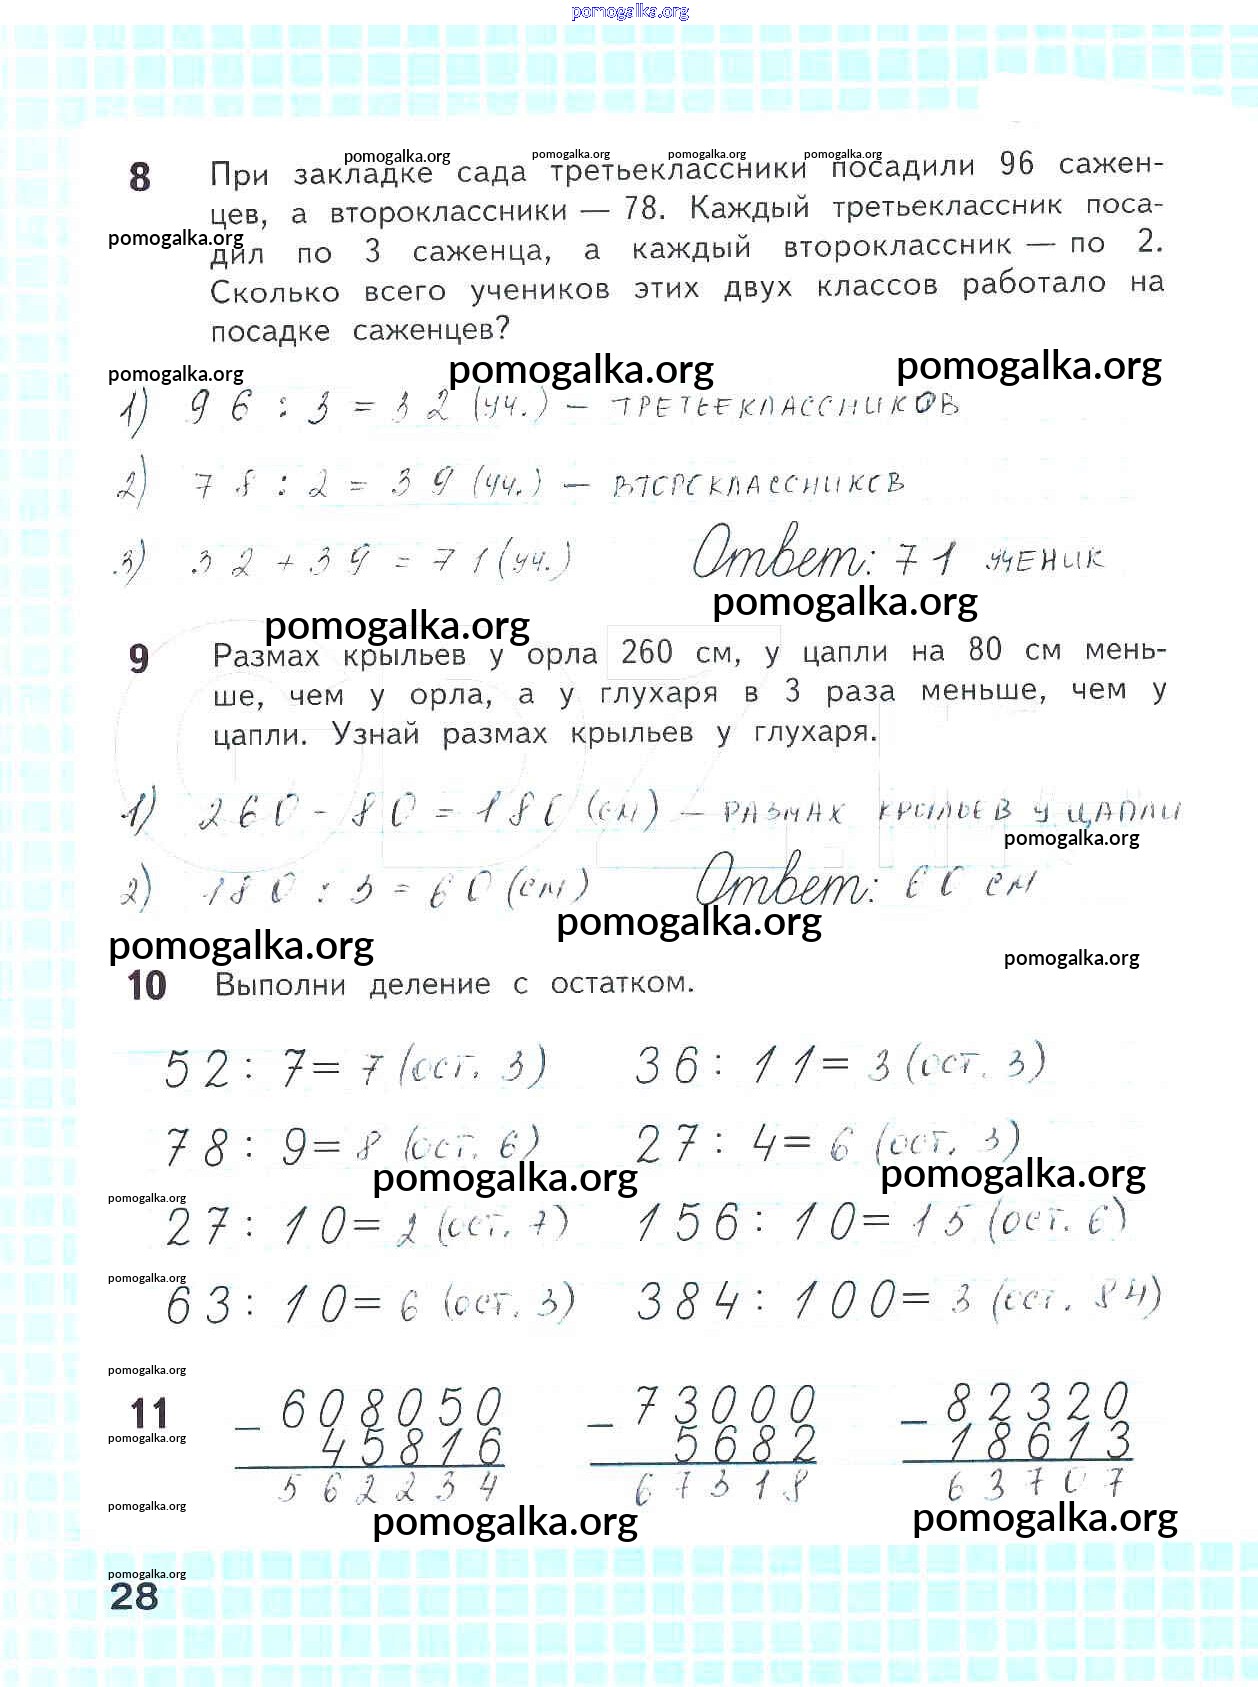 pomogalka.org
pomogalka.org pomogalka.org pomogalka.org pomogalka.org
8 При закладке сада третьеклассники посадили 96 сажен-
цев, а второклассники — 78. Каждый третьеклассник поса-
pomogalka.org
дил по 3 саженца, а каждый второклассник — по 2.
Сколько всего учеников этих двух классов работало на
посадке саженцев?
pomogalka.org pomogalka.org pomogalka.org
1) 96 : 3 = 32 (уч.) — ТРЕТЬЕКЛАССНИКОВ
2) 78 : 2 = 39 (уч.) — ВТОРОКЛАССНИКОВ
3) 32 + 39 = 71 (уч.) Ответ: 71 УЧЕНИК
pomogalka.org pomogalka.org
9 Размах крыльев у орла 260 см, у цапли на 80 см мень-
ше, чем у орла, а у глухаря в 3 раза меньше, чем у
цапли. Узнай размах крыльев у глухаря.
1) 260 - 80 = 180 (см) — РАЗМАХ КРЫЛЬЕВ У ЦАПЛИ
pomogalka.org
2) 180 : 3 = 60 (см) Ответ: 60 см
pomogalka.org pomogalka.org pomogalka.org
10 Выполни деление с остатком.
52 : 7 = 7 (ост. 3) 36 : 11 = 3 (ост. 3)
78 : 9 = 8 (ост. 6) 27 : 4 = 6 (ост. 3)
pomogalka.org pomogalka.org
pomogalka.org
27 : 10 = 2 (ост. 7) 156 : 10 = 15 (ост. 6)
pomogalka.org
63 : 10 = 6 (ост. 3) 384 : 100 = 3 (ост. 84)
pomogalka.org
11 – 608050 – 73000 – 82320
pomogalka.org
45816 5682 18613
562234 67318 63707
pomogalka.org pomogalka.org pomogalka.org
pomogalka.org
28